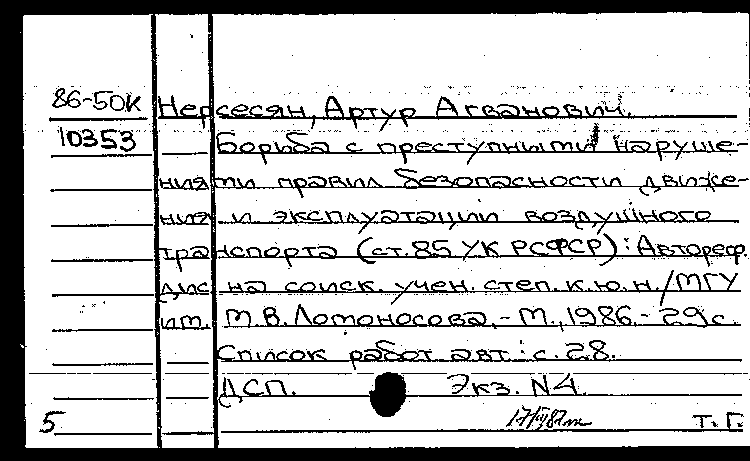 86-50К Нерсесян, Артур Агванович.
10353 Борьба с преступными наруше-
ниями правил безопасности движе-
ния и эксплуатации воздушного
транспорта (ст.85 УК РСФСР): Автореф.
дис на соиск. учен. степ. к.ю.н./МГУ
им. М.В.Ломоносова.-М.,1986.-29с.
Список работ авт.: с.28.
ДСП. Экз. N4.
5 Т.Г.